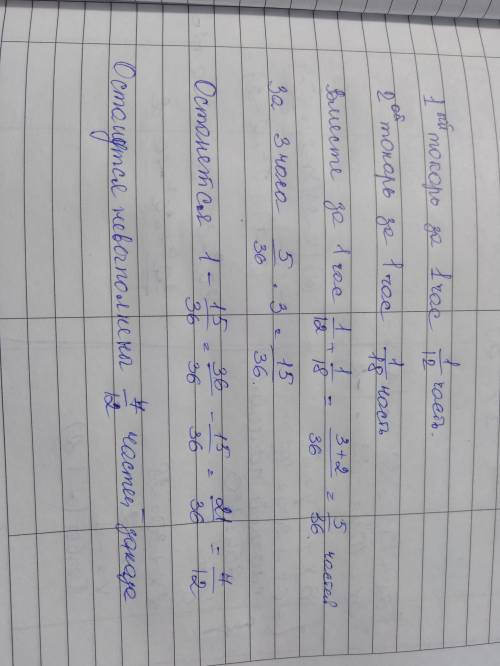 1ый токарь за 1 час 1/12 часть.
2ой токарь за 1 час 1/18 часть
Вместе за 1 час 1/12 + 1/18 = 3+2/36 = 5/36 частей
За 3 часа 5/36 · 3 = 15/36.
Останется 1 - 15/36 = 36/36 - 15/36 = 21/36 = 7/12
Останутся невыполнены 7/12 частей заказа